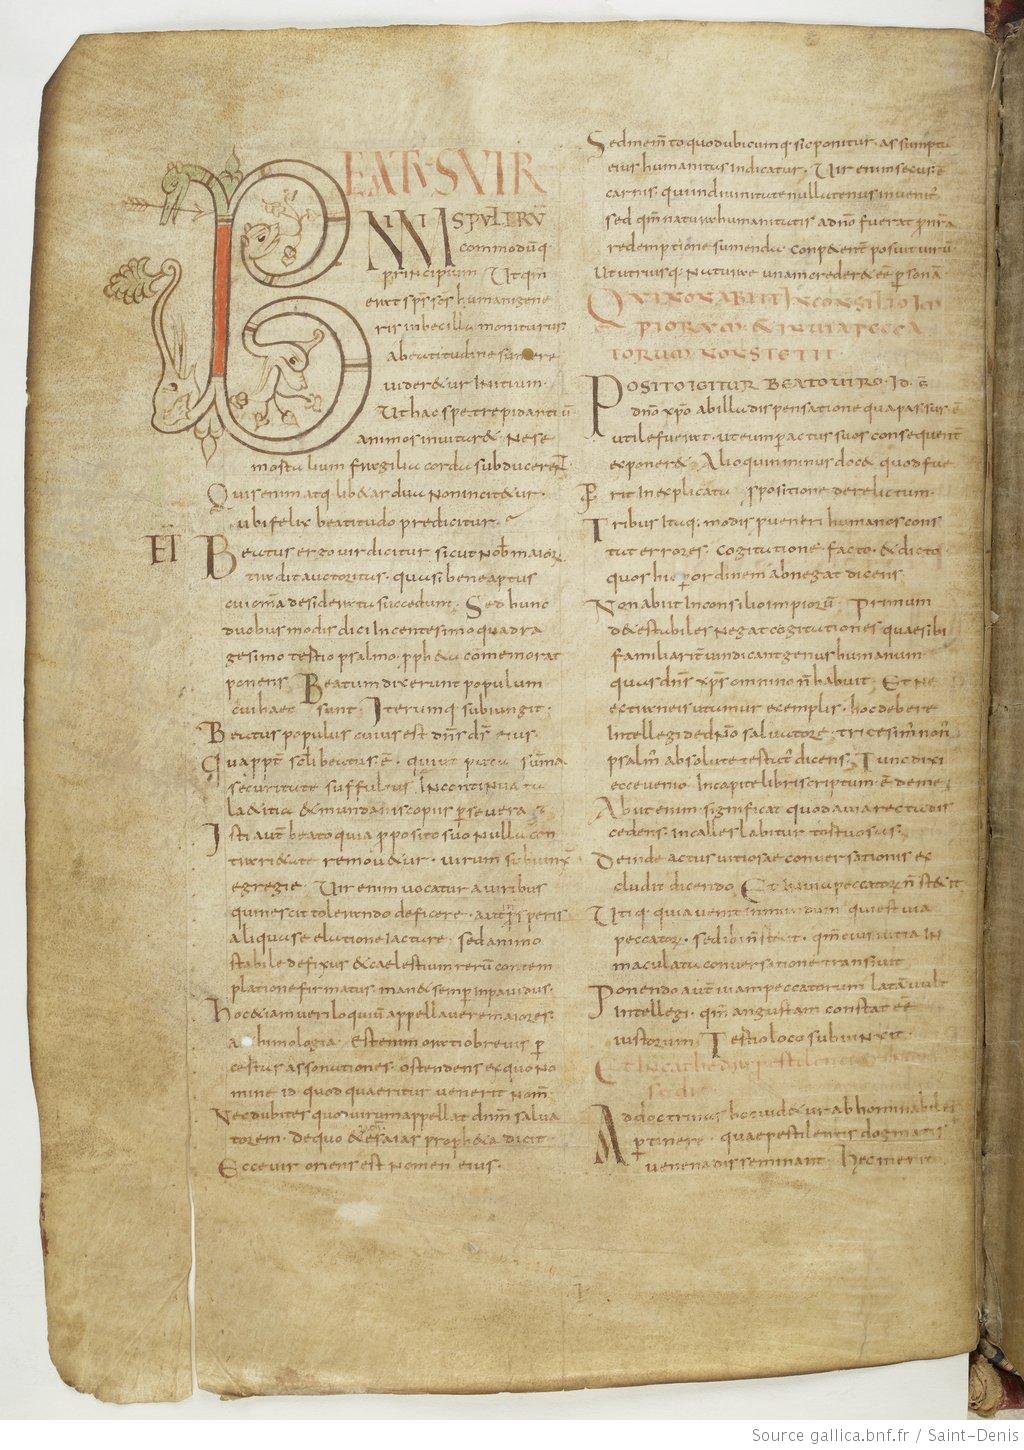 BEATUS VIR
INNISPULIRU
commodūq
principium Utqm
erat sps scs humani gene
ris inbecilla moniturus
a beatitudine sumere
uideratur initium
Ut hac spe trepidantiū
animos inuitar& Ne se
mostalium fragilia corda subducerent
Quis enim atq; libet ardua non incitetur
ubi felix beatitudo predicitur
Beatus ergo uir dicitur sicut nob maior
tradit auctoritas quasi bene aptus
cui omīa desiderata succedunt Sed hunc
duobus modis dici In centesimo quadra
gesimo testio psalmo ppheta comemorat
ponens Beatum dixerunt populum
cui haec sunt Iterumq subiungit
Beatus populus cuius est dns ds eius
securitate suffultus In continua tu
laetitia & mundanis copiis pseuera
Isti aut beato quia pposito suo nullu con
trarietate remouetur uirum subiunx
egregie Uir enim uocatur a uiribus
qui nescit tolerando deficere aut psperis
aliqua se elatione iactare sed animo
stabile defixus & caelestium rerū contem
platione firmatus manet semp inpauidus
Hoc etiam ueriloquiū appellauere maiores
&himologia Est enim oratio breuis p
certas assonationes ostendens ex quo no
mine id quod quaeritur uenerit nom
Nec dubites quod uirum appellat dnm salua
torem De quo & esaias propheta dicit
Ecce uir oriens est nomen eius
Sed mento quod ubicumq sic ponitur assumpta
eius humanitus indicatur Uir enim sexus ē
carnis qui in diuinitate nullatenus inuenit
sed qm natura humanitatis a dno fuerat p nra
redemptione sumenda conpetent posuit uirū
Ut utriusq naturae una crederetur ee psona
QUI NON ABIIT IN CONSILIO IM
PIORUM & IN UIA PECCA
TORUM NON STETIT
POSITO IGITUR BEATO UIRO Id ē
dno xpo ab illa dispensatione qua passus ē
utile fuerat ut eum p actus suos consequent
exponeret Alioquin minus docet quod fue
rit Inexplicata spositione derelictum
Tribus itaq; modis p ueneri humanos cons
tat errores Cogitatione facto & dicto
quos hic p ordinem abnegat dicens
Non abiit In consilio impiorū Primum
detestabiles negat cogitationes quae sibi
familiarit uindicant genus humanum
quas dns xps omnino n habuit Et ne
extraneis utamur exemplis hoc debere
Intellegi de dno saluatore tricesim non
psalm absolute testat dicens Tunc dixi
ecce uenio In capite libri scriptum ē de me
Abiit enim significat quod a uia recta dis
cedens In calles labitur tostuosus
Deinde actus uitiosae conuersationis ex
cludit dicendo Et In uia peccator n stetit
Utiq quia uenit In mundum qui est uia
peccator sed ibi n stetit qm eius uitia In
maculata conuersatione transiuit
Ponendo aut uiam peccatorum latā uult
Intellegi qm angustam constat eē
iustorum Testio loco subiunxit
Et In cathedra pestilentiae non
sedit
Ad doctrinas hoc uidetur abhominabiles
ptinere quae pestilentis dogmatis
uenena disseminant hec merit
Source gallica.bnf.fr / Saint-Denis